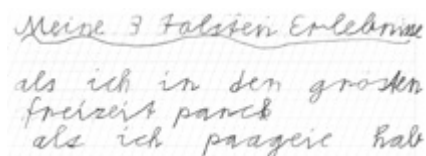 Meine 3 tolsten Erlebnisse
als ich in den grösten
freizeit panck
als ich paageie hab